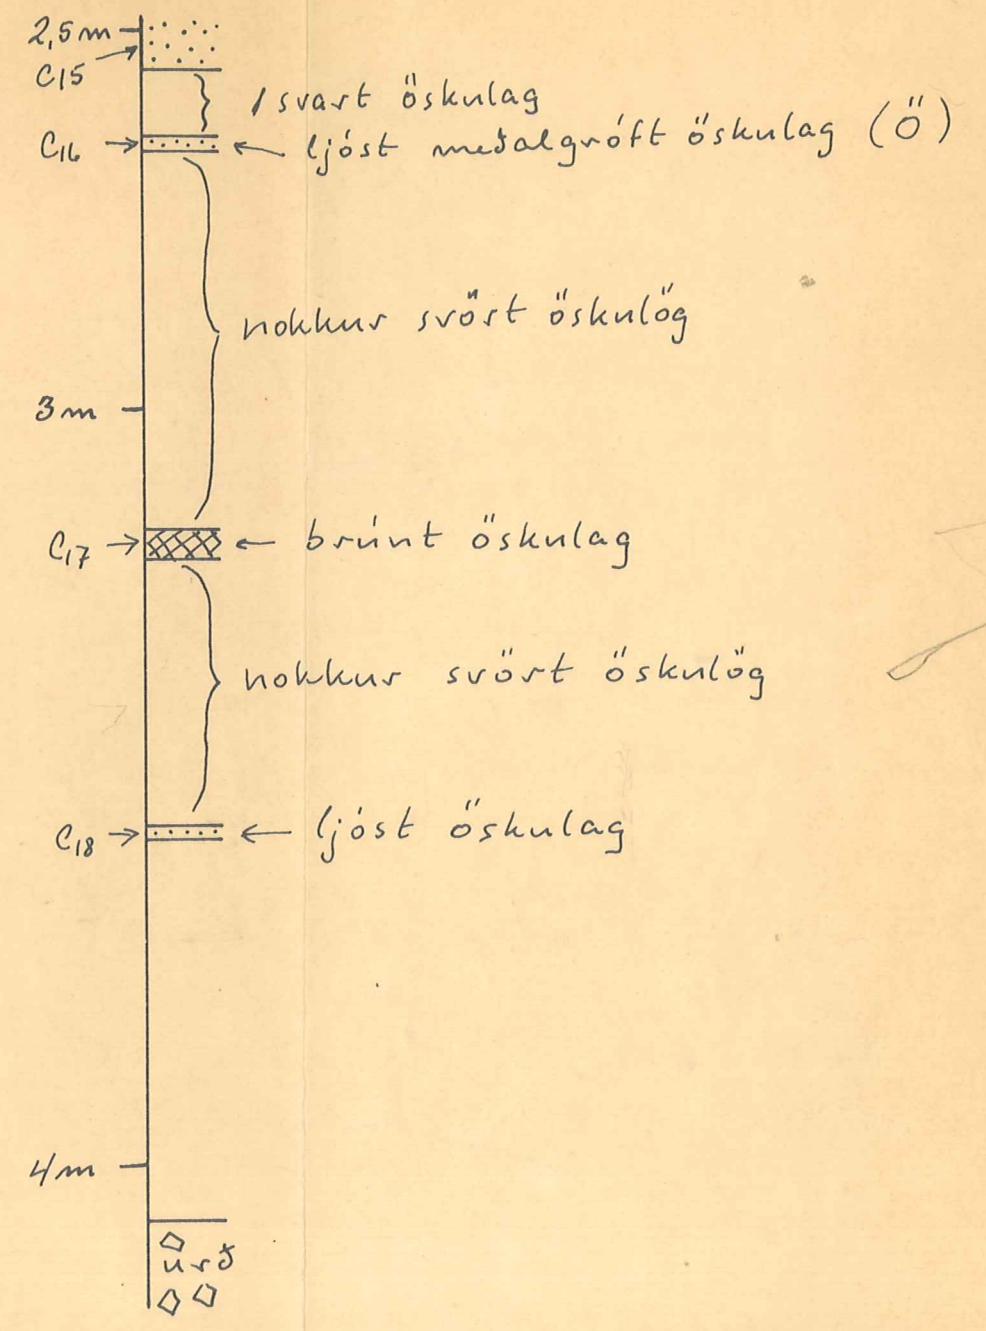 2,5m
C15
1 svart öskulag
C16
ljóst meðalgróft öskulag (Ö)
nokkur svört öskulög
3m
C17
brúnt öskulag
nokkur svört öskulög
C18
ljóst öskulag
4m
urð